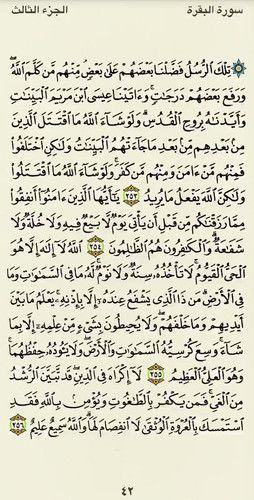 سورة البقرة الجزء الثالث
۞ تِلْكَ ٱلرُّسُلُ فَضَّلْنَا بَعْضَهُمْ عَلَىٰ بَعْضٍ مِّنْهُم مَّن كَلَّمَ ٱللَّهُ
وَرَفَعَ بَعْضَهُمْ دَرَجَٰتٍ وَءَاتَيْنَا عِيسَى ٱبْنَ مَرْيَمَ ٱلْبَيِّنَٰتِ
وَأَيَّدْنَٰهُ بِرُوحِ ٱلْقُدُسِ وَلَوْ شَآءَ ٱللَّهُ مَا ٱقْتَتَلَ ٱلَّذِينَ
مِنۢ بَعْدِهِم مِّنۢ بَعْدِ مَا جَآءَتْهُمُ ٱلْبَيِّنَٰتُ وَلَٰكِنِ ٱخْتَلَفُوا۟
فَمِنْهُم مَّنْ ءَامَنَ وَمِنْهُم مَّن كَفَرَ وَلَوْ شَآءَ ٱللَّهُ مَا ٱقْتَتَلُوا۟
وَلَٰكِنَّ ٱللَّهَ يَفْعَلُ مَا يُرِيدُ ٢٥٣ يَٰٓأَيُّهَا ٱلَّذِينَ ءَامَنُوٓا۟ أَنفِقُوا۟
مِمَّا رَزَقْنَٰكُم مِّن قَبْلِ أَن يَأْتِىَ يَوْمٌ لَّا بَيْعٌ فِيهِ وَلَا خُلَّةٌ وَلَا
شَفَٰعَةٌ وَٱلْكَٰفِرُونَ هُمُ ٱلظَّٰلِمُونَ ٢٥٤ ٱللَّهُ لَآ إِلَٰهَ إِلَّا هُوَ
ٱلْحَىُّ ٱلْقَيُّومُ لَا تَأْخُذُهُۥ سِنَةٌ وَلَا نَوْمٌ لَّهُۥ مَا فِى ٱلسَّمَٰوَٰتِ وَمَا
فِى ٱلْأَرْضِ مَن ذَا ٱلَّذِى يَشْفَعُ عِندَهُۥٓ إِلَّا بِإِذْنِهِۦ يَعْلَمُ مَا بَيْنَ
أَيْدِيهِمْ وَمَا خَلْفَهُمْ وَلَا يُحِيطُونَ بِشَىْءٍ مِّنْ عِلْمِهِۦٓ إِلَّا بِمَا
شَآءَ وَسِعَ كُرْسِيُّهُ ٱلسَّمَٰوَٰتِ وَٱلْأَرْضَ وَلَا يَـُٔودُهُۥ حِفْظُهُمَا
وَهُوَ ٱلْعَلِىُّ ٱلْعَظِيمُ ٢٥٥ لَآ إِكْرَاهَ فِى ٱلدِّينِ قَد تَّبَيَّنَ ٱلرُّشْدُ
مِنَ ٱلْغَىِّ فَمَن يَكْفُرْ بِٱلطَّٰغُوتِ وَيُؤْمِنۢ بِٱللَّهِ فَقَدِ
ٱسْتَمْسَكَ بِٱلْعُرْوَةِ ٱلْوُثْقَىٰ لَا ٱنفِصَامَ لَهَا وَٱللَّهُ سَمِيعٌ عَلِيمٌ ٢٥٦
٤٢